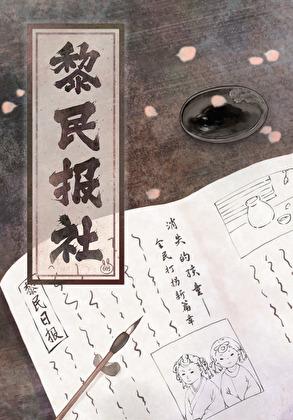 黎民报社
消失的孩童
全民打拐新篇章
黎民日报